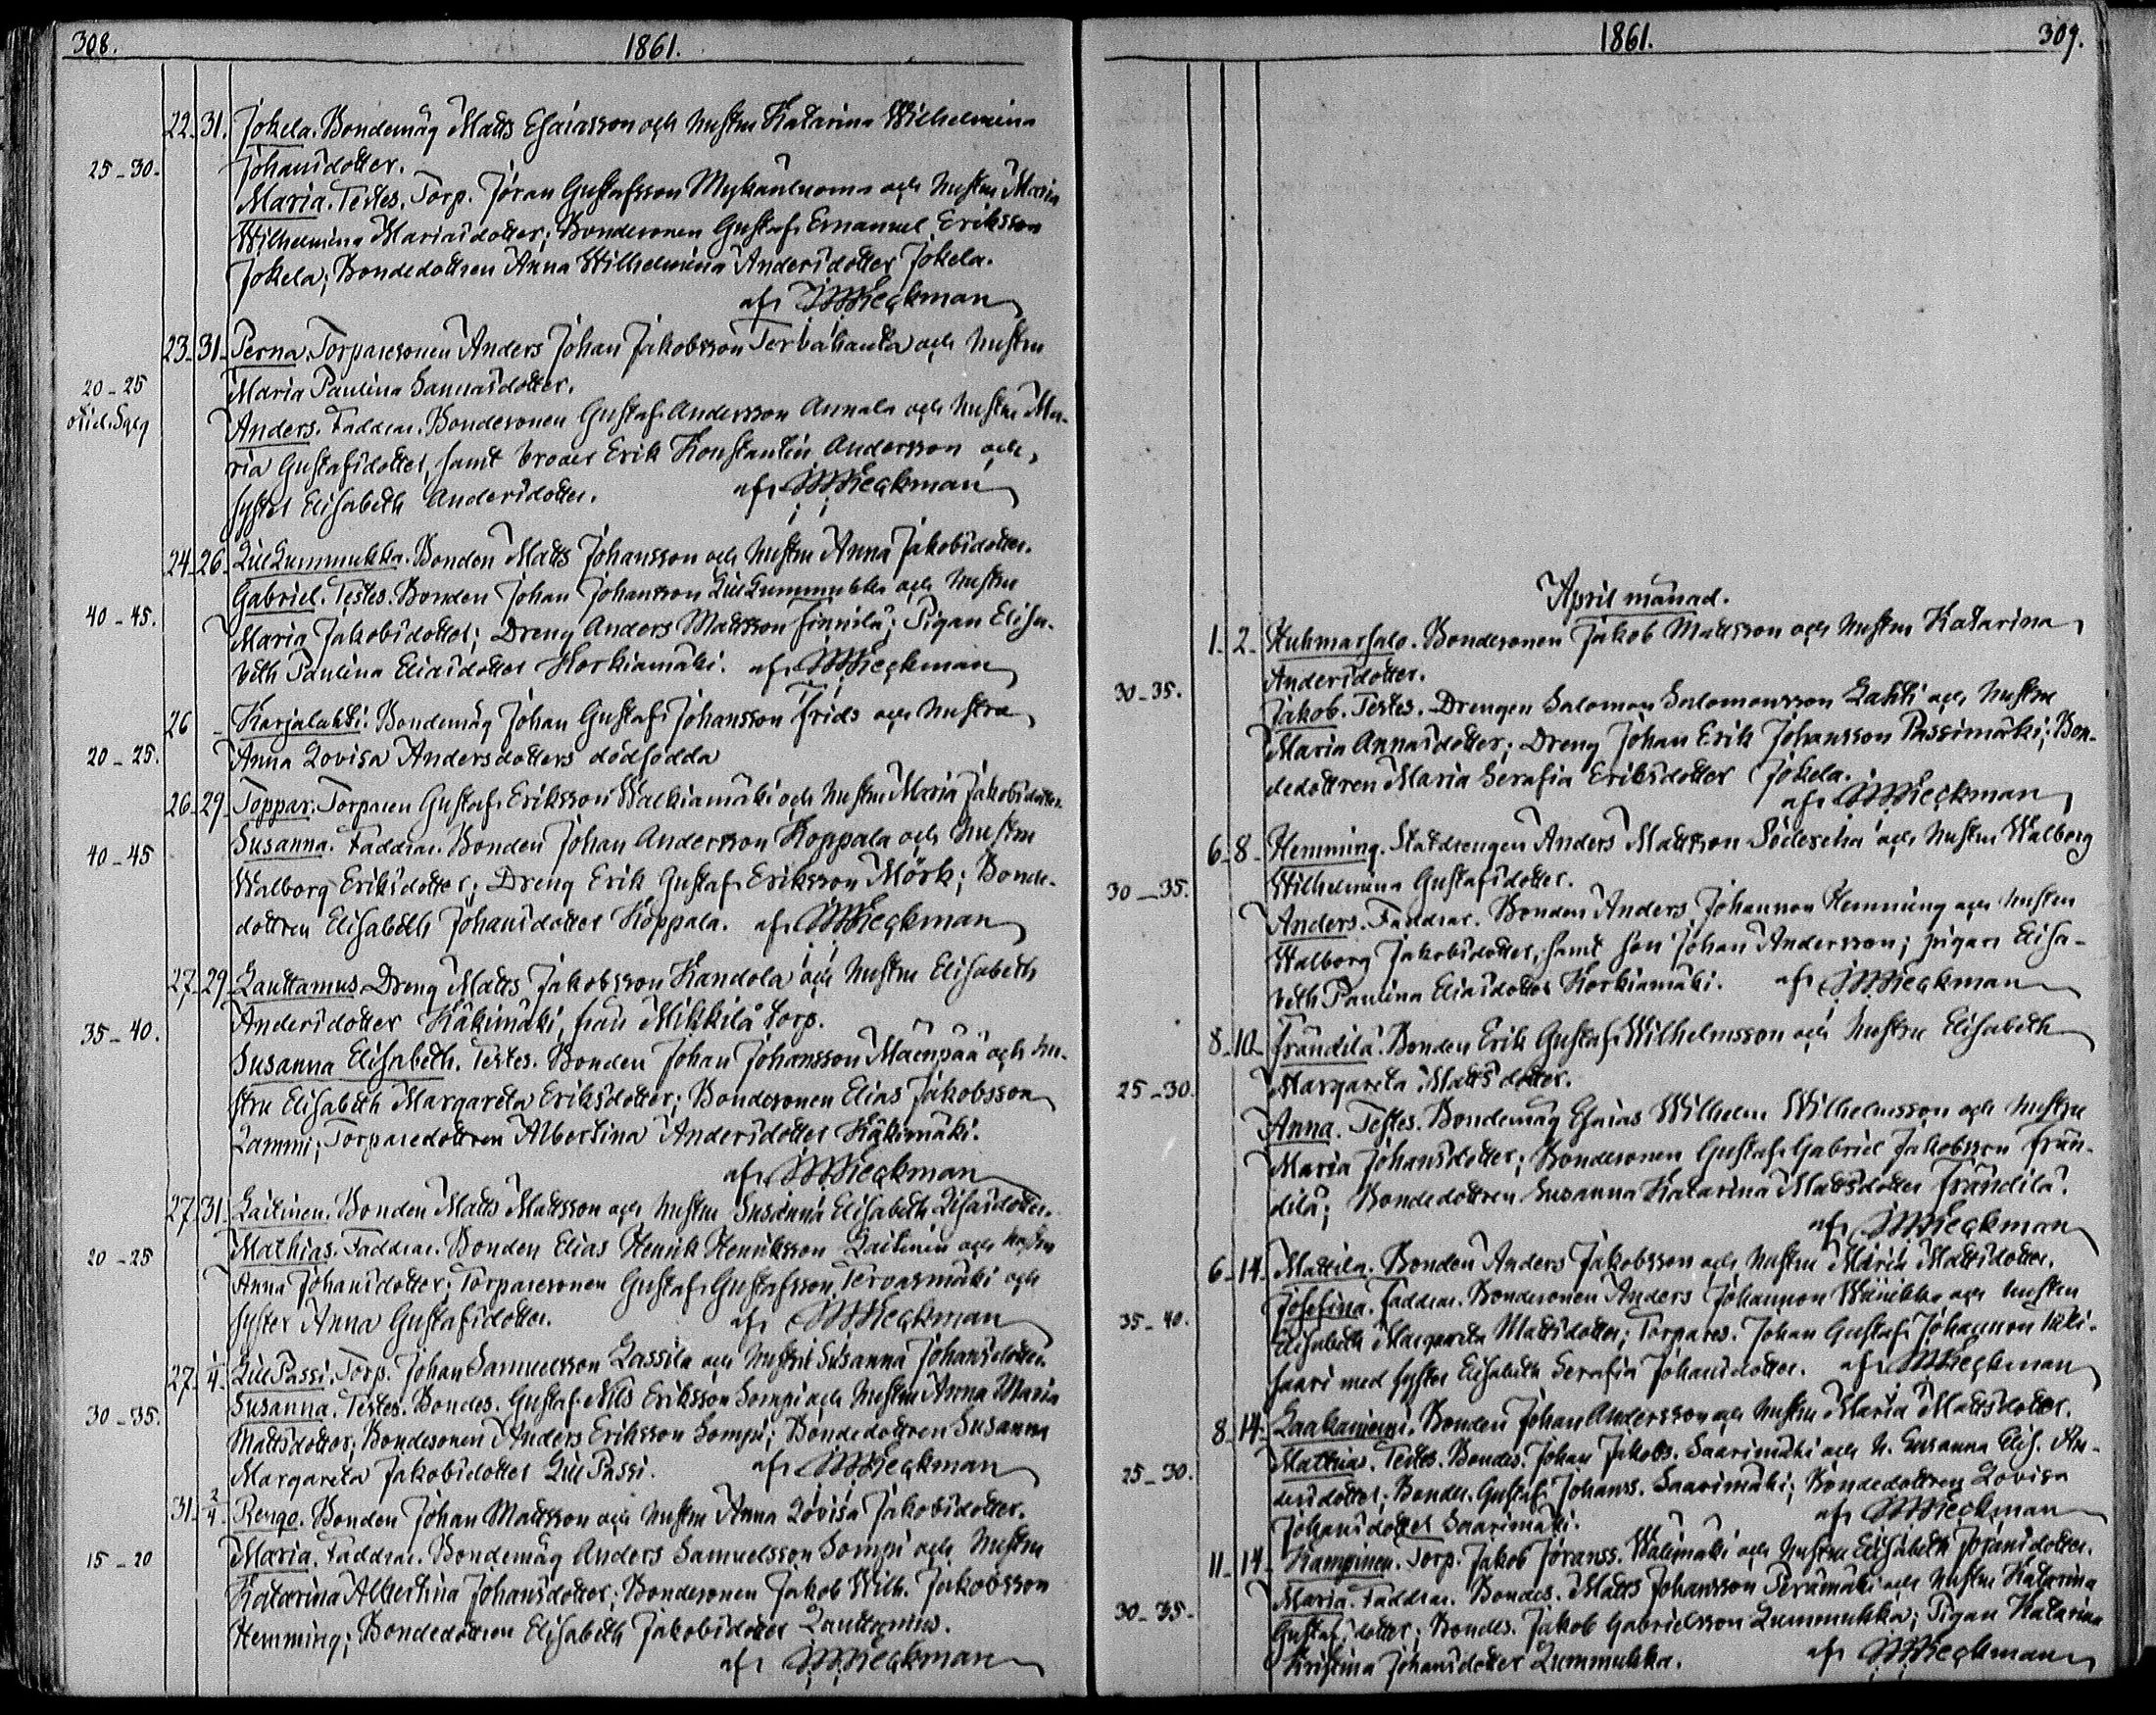 308.
1861.
22. 31. Jokela. Bondemåg Matts Esaiasson och hustru Katarina Wilhelmina
25-30. Johansdotter.
Maria. Testes. Torp. Jöran Gustafsson Mykänluoma och hustru Maria
Wilhelmina Mariasdotter; Bondesonen Gustaf Emanuel Eriksson
Jokela; Bondedottren Anna Wilhelmina Andersdotter Jokela.
af
23. 31. Perna. Torparesonen Anders Johan Jakobsson Tervahauta och hustru
20-25 Maria Paulina Sannasdotter.
Anders. Faddrar. Bondesonen Gustaf Andersson Annala och hustru Ma-
ria Gustafsdotter, samt broder Erik Konstantin Andersson och
syster Elisabeth Andersdotter. af
24. 26. LillLummukka. Bonden Matts Johansson och hustru Anna Jakobsdotter.
Gabriel. Testes. Bonden Johan Johansson LillLummukka och hustru
40-45. Maria Jakobsdotter; Dreng Anders Mattsson Finnilä; Pigan Elisa-
beth Paulina Eliasdotter Korkiamäki. af
26 - Karjalahti. Bondemåg Johan Gustaf Johansson Frids och hustru
20-25. Anna Lovisa Andersdotters dödfödda
26. 29. Toppar. Torparen Gustaf Eriksson Walkiamäki och hustru Maria Jakobsdotter.
Susanna. Faddrar. Bonden Johan Andersson Koppala och hustru
40-45 Walborg Eriksdotter; Dreng Erik Gustaf Eriksson Mörk; Bonde-
dottren Elisabeth Johansdotter Koppala. af
27. 29. Lauttamus. Dreng Matts Jakobsson Kandola och hustru Elisabeth
Andersdotter Käkimäki, från Mikkilä torp.
35-40. Susanna Elisabeth. Testes. Bonden Johan Johansson Mäenpää och hu-
stru Elisabeth Margareta Eriksdotter; Bondesonen Elias Jakobsson
Lammi; Torparedottren Albertina Andersdotter Käkimäki.
af
27. 31. Laitinen. Bonden Matts Mattsson och hustru Susanna Elisabeth
Mathias. Faddrar. Bonden Elias Henrik Henriksson Laitinen och hustru
20-25 Anna Johansdotter; Torparesonen Gustaf Gustafsson Tervasmäki och
syster Anna Gustafsdotter. af
27. 1/4. LillPassi. Torp. Johan Samuelsson Lassila och hustru Susanna Johansdotter.
Susanna. Testes. Bondes. Gustaf Nils Eriksson Sompi och hustru Anna Maria
30-35. Mattsdotter; Bondesonen Anders Eriksson Sompi; Bondedottren Susanna
Margareta Jakobsdotter LillPassi. af
31. 2/4. Rengo. Bonden Johan Mattsson och hustru Anna Lovisa Jakobsdotter.
15-20 Maria. Faddrar. Bondemåg Anders Samuelsson Sompi och hustru
Katarina Albertina Johansdotter; Bondesonen Jakob Wilh. Jakobsson
Hemming; Bondedottren Elisabeth Jakobsdotter Lauttamus.
af
1861.
309.
April månad.
1. 2. Huhmarsalo. Bondesonen Jakob Mattsson och hustru Katarina
Andersdotter.
30-35. Jakob. Testes. Drengen Salomon Salomonsson Lahti och hustru
Maria Annasdotter; Dreng Johan Erik Johansson Passimäki; Bon-
dedottren Maria Serafia Eriksdotter Jokela.
af
6. 8. Hemming. Statdrengen Anders Mattsson och hustru Walborg
30-35. Wilhelmina Gustafsdotter.
Anders. Faddrar. Bonden Anders Johansson Hemming och hustru
Walborg Jakobsdotter, samt son Johan Andersson; pigan Elisa-
beth Paulina Eliasdotter Korkiamäki. af
8. 10. Frändilä. Bonden Erik Gustaf Wilhelmsson och hustru Elisabeth
25-30. Margareta Mattsdotter.
Anna. Testes. Bondemåg Esaias Wilhelm Wilhelmsson och hustru
Maria Johansdotter; Bondesonen Gustaf Gabriel Jakobsson Frän-
dilä; Bondedottren Susanna Katarina Mattsdotter Frändilä.
af
6. 14. Mattila. Bonden Anders Jakobsson och hustru Maria Mattsdotter.
Josefina. Faddrar. Bondesonen Anders Johansson och hustru
35-40. Elisabeth Margareta Mattsdotter; Torpares. Johan Gustaf Johansson
saari med syster Elisabeth Serafia Johansdotter. af
8. 14. Laakaniemi. Bonden Johan Andersson och hustru Maria Mattsdotter.
25-30. Mathias. Testes. Bondes. Johan Jakobs. Saarimäki och h. Susanna Elis. An-
dersdotter; Bondes. Gustaf Johanss. Saarimäki; Bondedottren Lovisa
Johansdotter Saarimäki. af
11. 14. Kampinen. Torp. Jakob Jöranss. Wälimäki och hustru Elisabeth Jöransdotter.
Maria. Faddrar. Bondes. Matts Johansson Perämäki och hustru Katarina
30-35. Gustafsdotter; Bondes. Jakob Gabrielsson Lummukka; Pigan Katarina
Kristina Johansdotter Lummukka. af